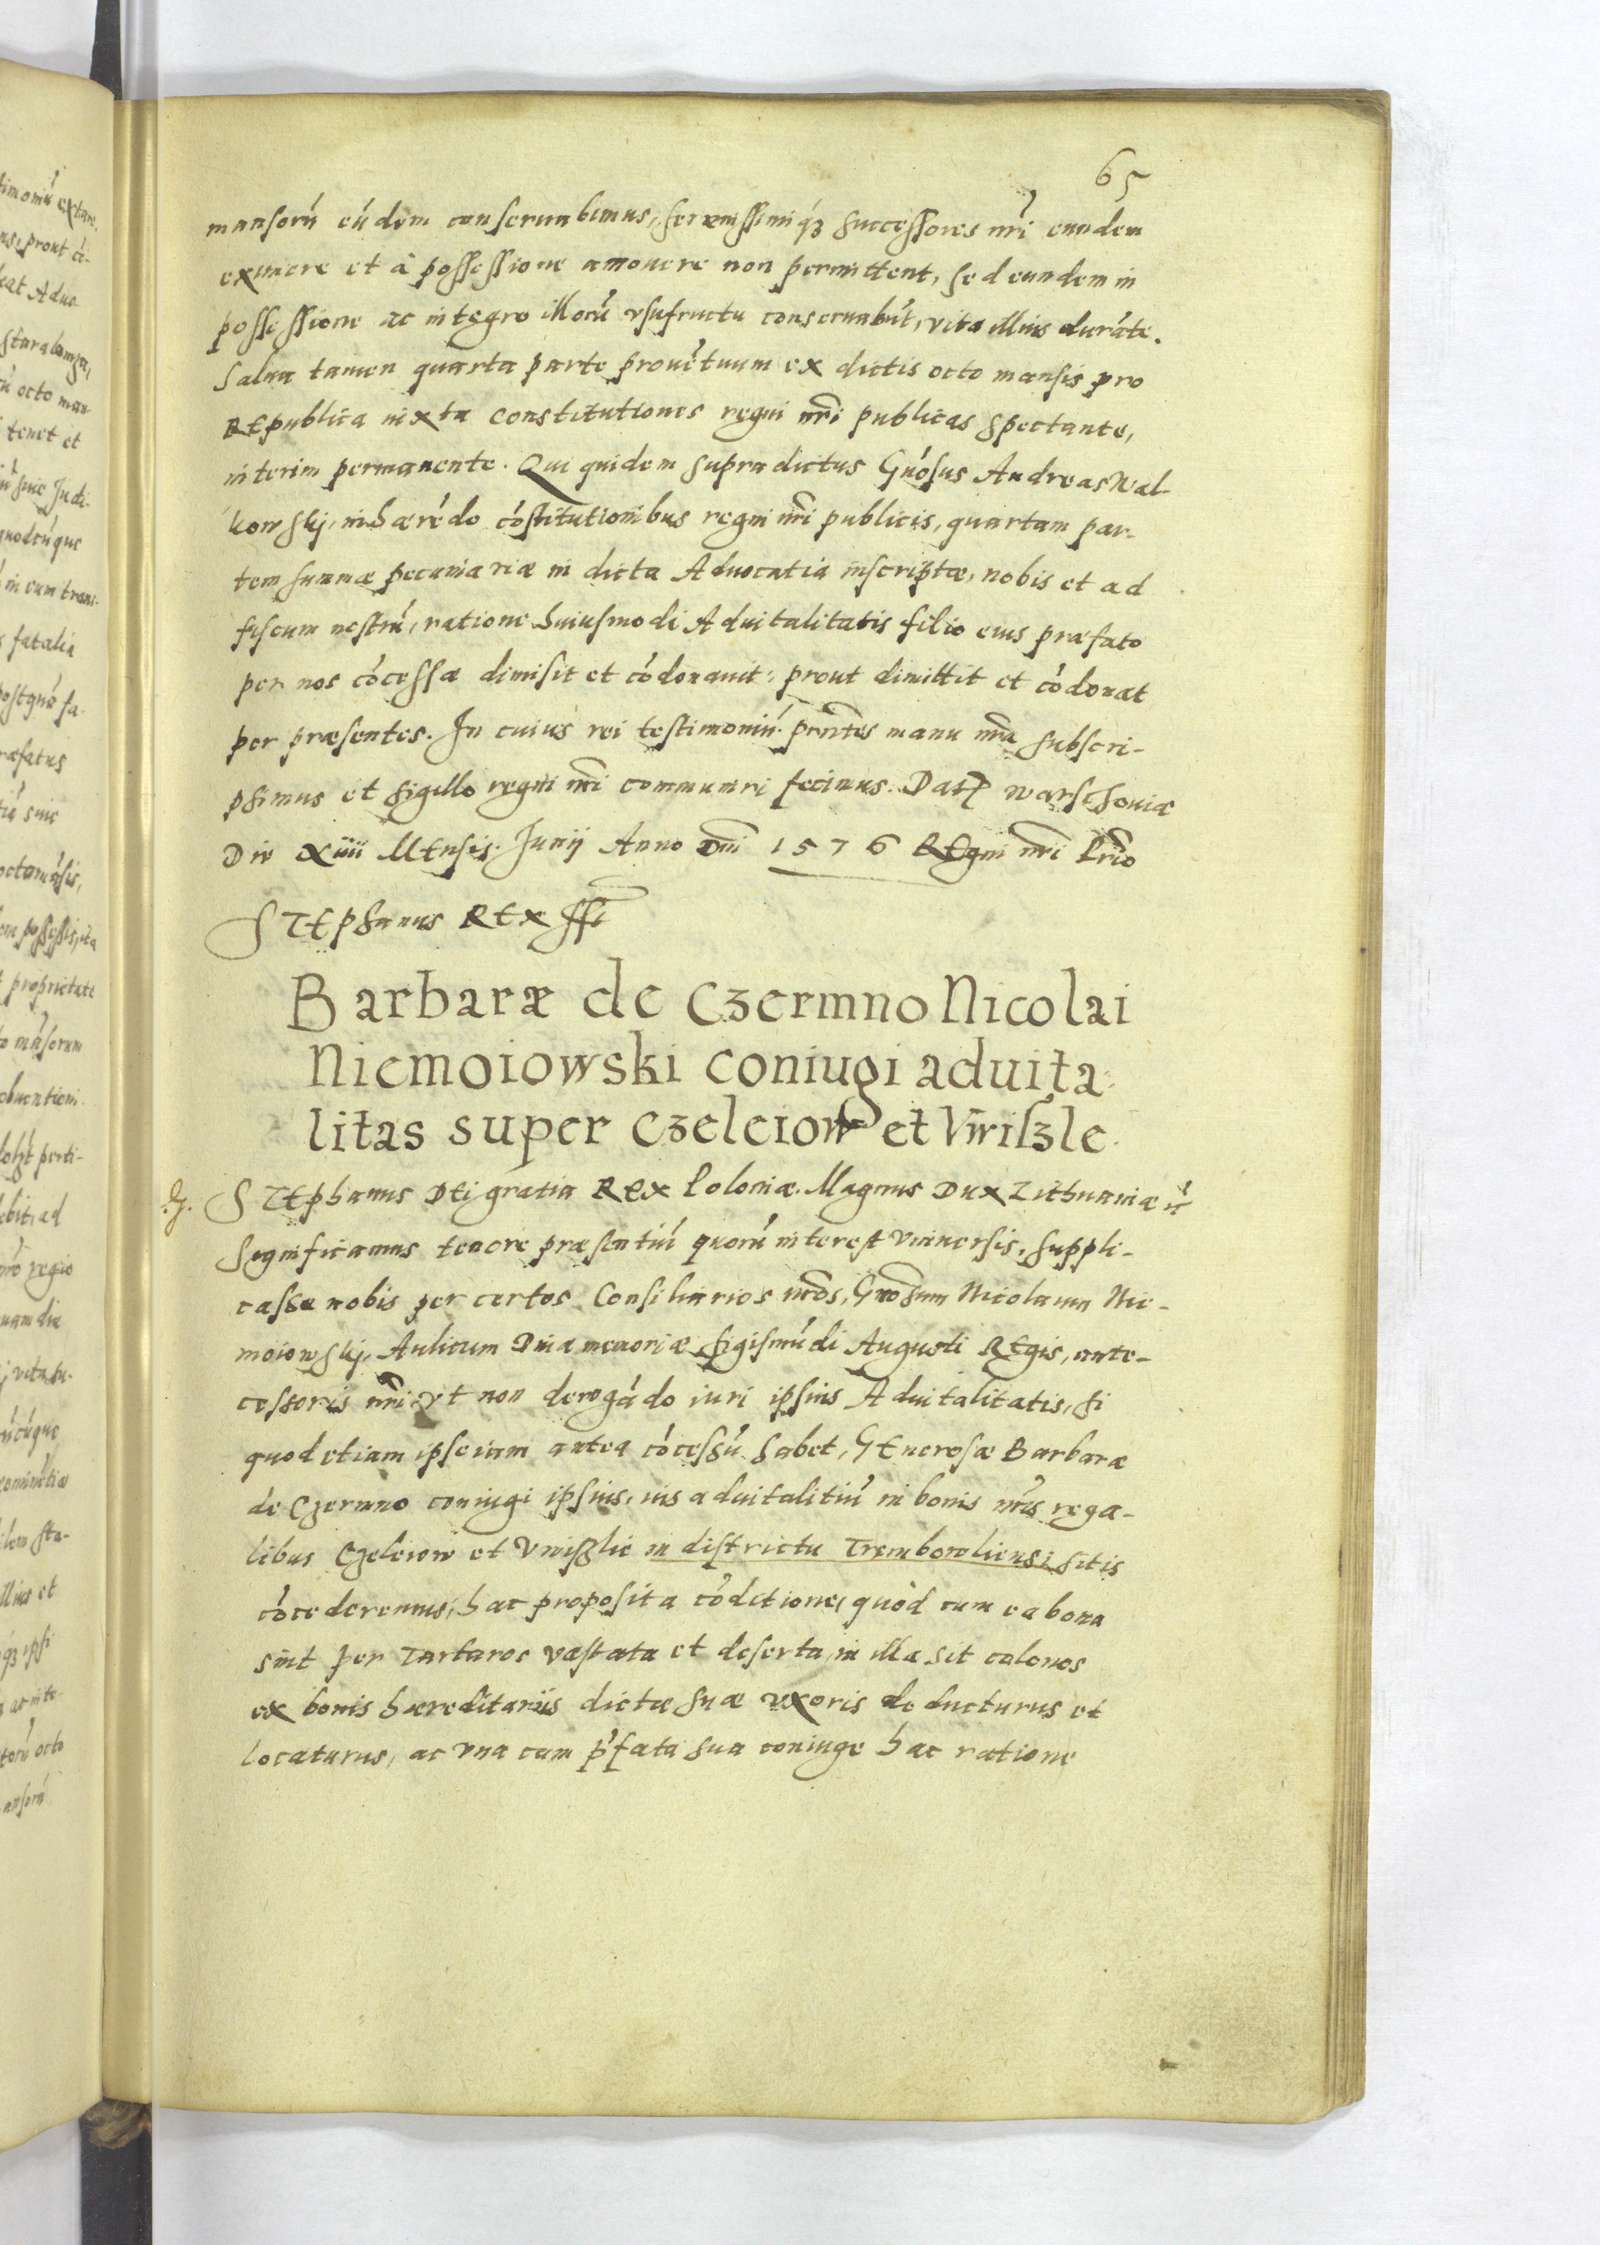 65
mansorú eúdem conseruabimus, serenissimiq₃ successores nr̃i eundem
eximere et à possessione amouere non permittent, sed eundem in
possessione ac integro illorú vsufructu conseruabút, vita illius duráte.
Salua tamen quarta parte prouétuum ex dictis octo mansis pro
REpublica iuxta constitutiones regni nr̃i publicas spectante,
interim permanente. Qui quidem supradictus Gńosus Andreas Wal-
kowskj, inhærédo cóstitutionibus regni nr̃i publicis, quartam par-
tem summæ pecuniariæ in dicta Aduocatia inscriptæ, nobis et ad
fiscum nostrú, ratione huiusmodi Aduitalitatis filio eius præfato
per nos cócessæ dimisit et códonauit: prout dimittit et códonat
per præsentes. In cuius rei testimoniú pñtes manu nr̃a subscri-
psimus et sigillo regni nr̃i communiri fecimus. Dat Warschouiæ
Die Xiiii MEnsis Junij Anno Dñi 1576 REgni nr̃i Primo
STEphanus REX sst
Barbaræ de Czermno Nicolai
Niemoiowski coniugi aduita-
litas super Czeleiow et Vwiszle.
STEphanus DEi gratia REX Poloniæ. Magnus Dux Lithuaniæ
Significamus tenore præsentiú quorú interest vniuersis, suppli-
casse nobis per certos Consiliarios nr̃os, Gñosum Nicolaum Nie-
moiowskj, Aulicum Diuæ memoriæ Sigismúdi Augusti REgis, ante-
cessoris nr̃i vt non derogádo iuri ipsius Aduitalitatis, si
quod etiam ipse iam antea cócessú habet, GEnerosæ Barbaræ
de Czermno coniugi ipsius, ius aduitalitiú in bonis nr̃is rega-
libus Czeleiow et Vwiszlie in districtu Trembowliensi sitis
cócederemus, hac proposita códitione, quòd cum ea bona
sint per Tartaros vastata et deserta, in illa sit colonos
ex bonis hæreditariis dictæ suæ vxoris deducturus et
locaturus, ac vna cum p̃fata sua coniuge hac ratione